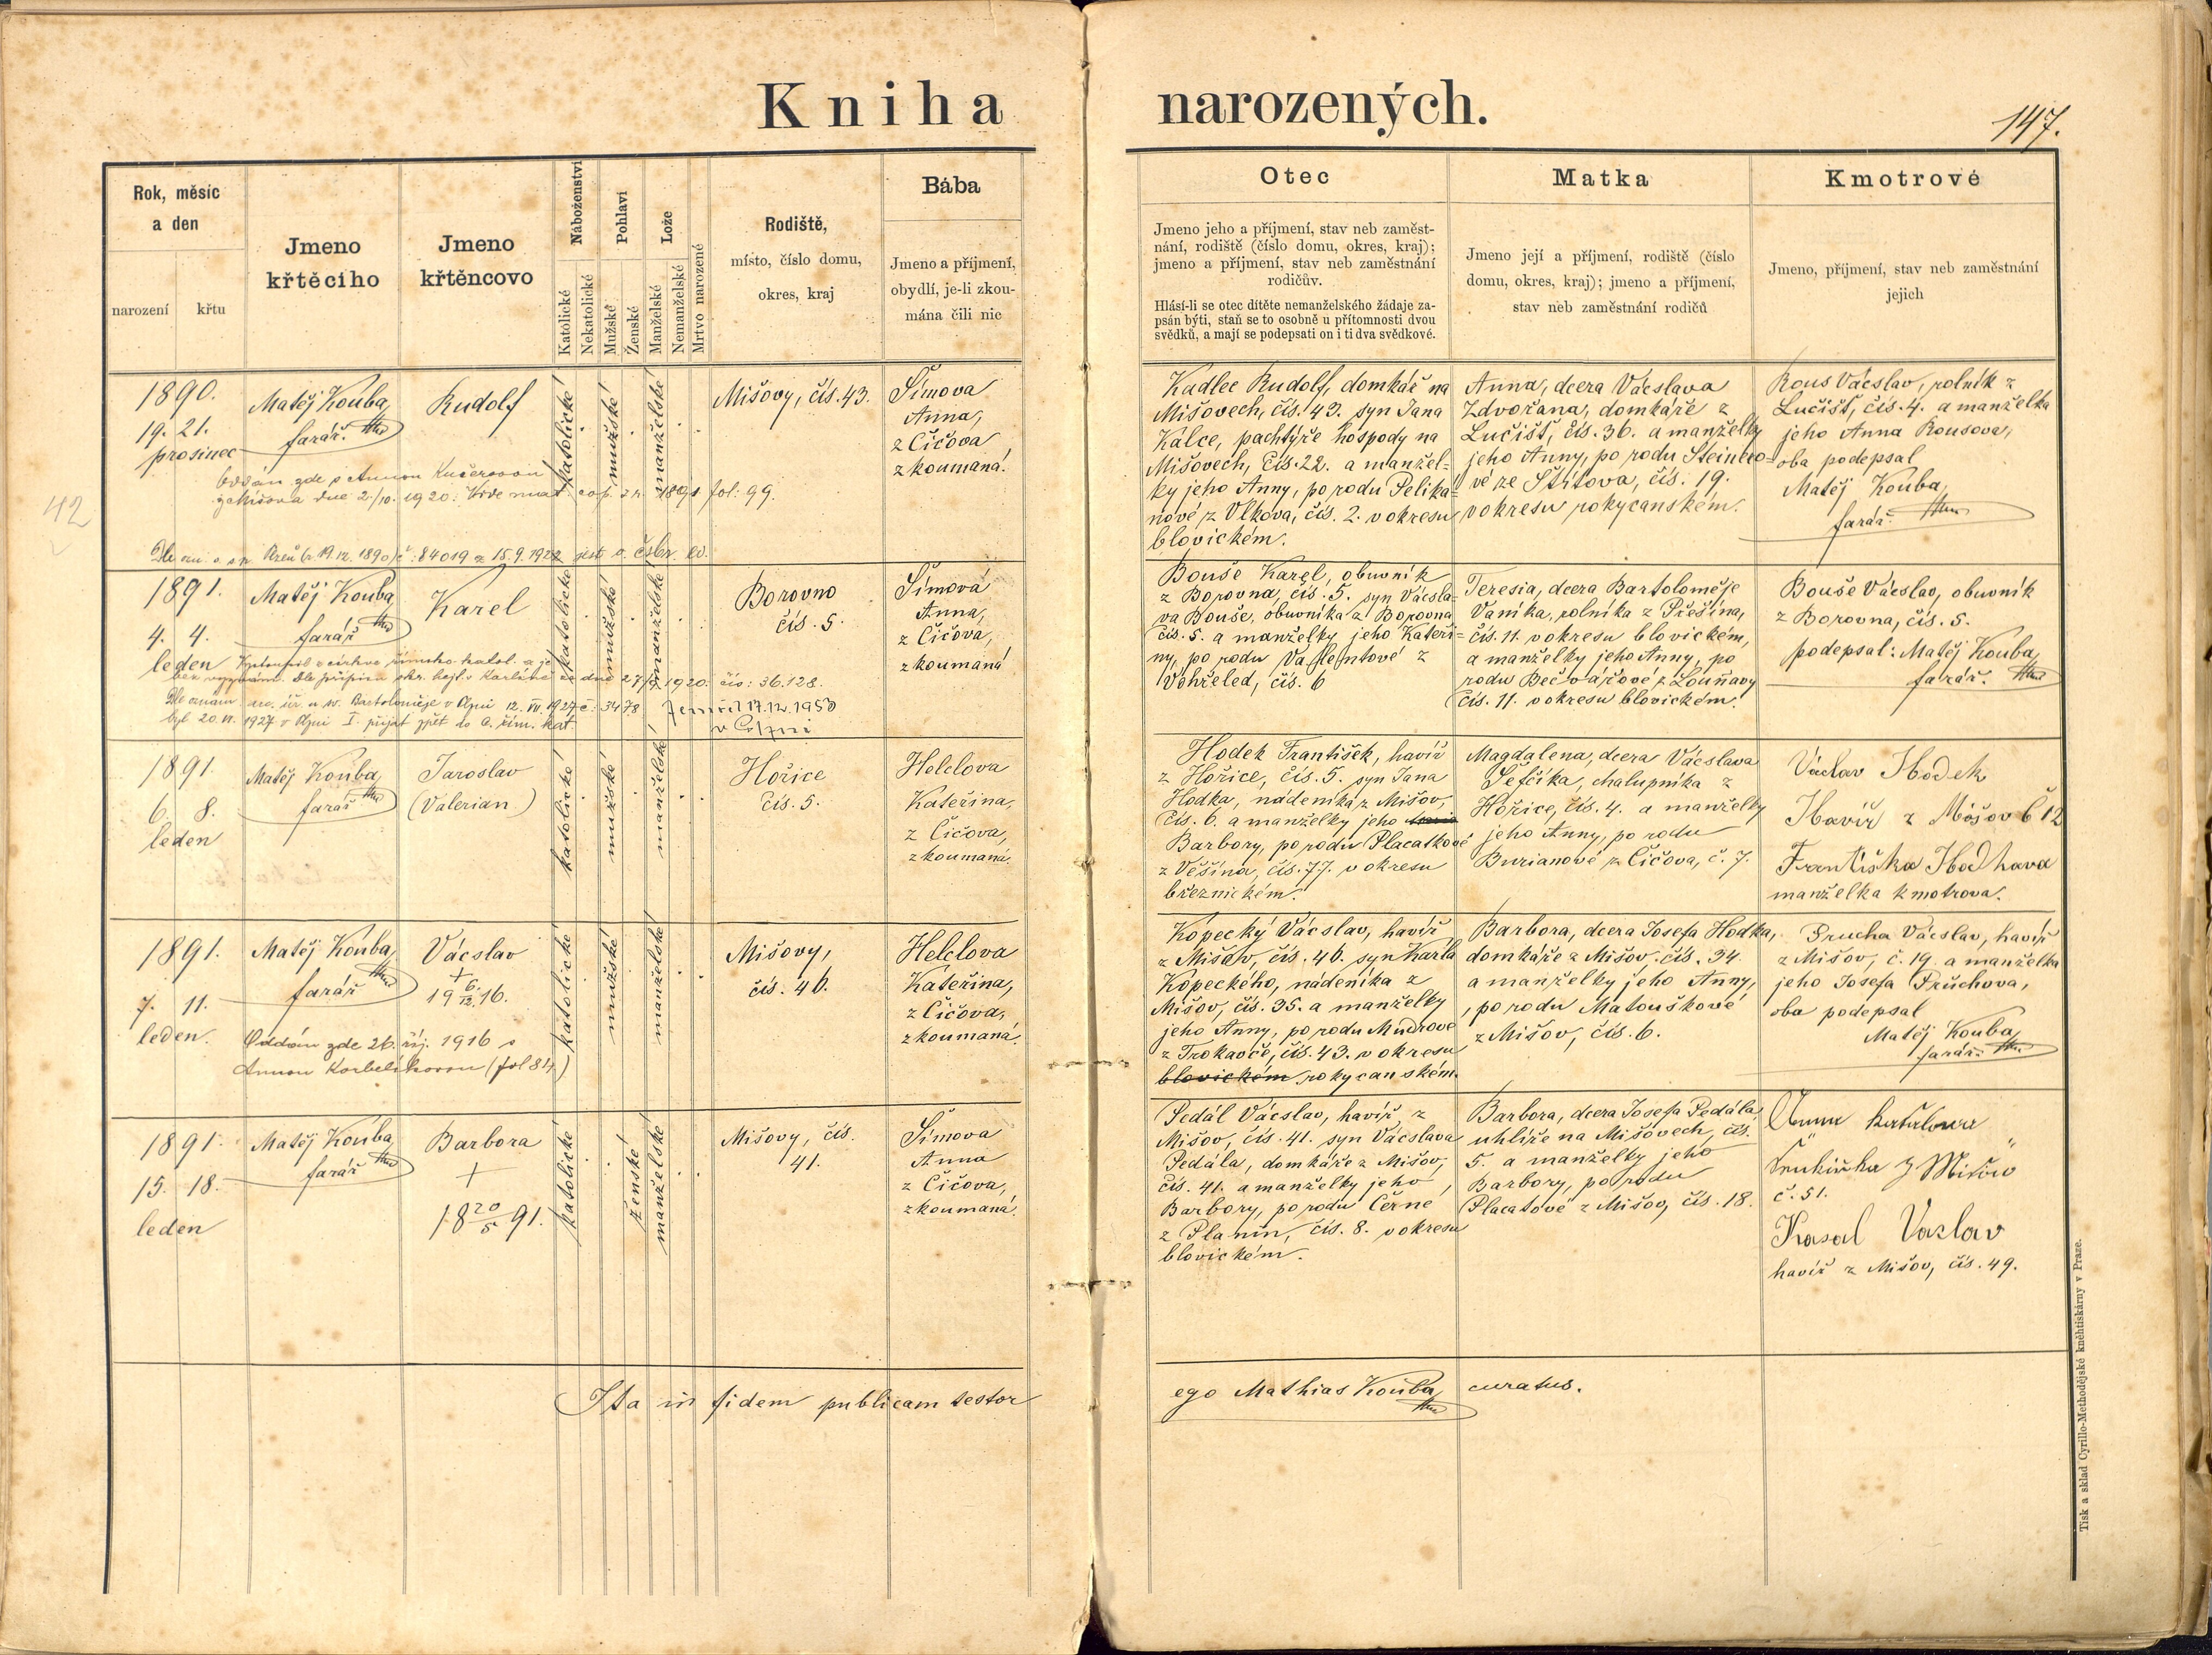 Kniha narozených.
147.
Rok, měsíc
a den
narození
křtu
Jmeno
křtěcího
Jmeno
křtěncovo
Náboženství
Katolické
Nekatolické
Pohlaví
Mužské
Ženské
Lože
Manželské
Nemanželské
Mrtvo narozené
Rodiště,
místo, číslo domu,
okres, kraj
Bába
Jmeno a příjmení,
obydlí, je-li zkou-
mána čili nic
Otec
Jmeno jeho a příjmení, stav neb zaměst-
nání, rodiště (číslo domu, okres, kraj);
jmeno a příjmení, stav neb zaměstnání
rodičův.
Hlásí-li se otec dítěte nemanželského žádaje za-
psán býti, staň se to osobně u přítomnosti dvou
svědků, a mají se podepsati on i ti dva svědkové.
Matka
Jmeno její a příjmení, rodiště (číslo
domu, okres, kraj); jmeno a příjmení,
stav neb zaměstnání rodičů
Kmotrové
Jmeno, příjmení, stav neb zaměstnání
jejich
1890.
19. 21.
prosinec
Matěj Kouba,
farář.
Rudolf
katolické
mužské
manželské
Mišovy, čís. 43.
Šímova
Anna,
z Čičova,
zkoumaná.
Oddán zde s Annou Kučerovou
z Mišova dne 2./10. 1920. fol: 99.
42
Kadlec Rudolf, domkář na
Mišovech, čís. 43. syn Jana
Kalce, pachtýře hospody na
Mišovech, čís. 22. a manžel=
ky jeho Anny, po rodu Peliká=
nové z Vlkova, čís. 2. v okresu
blovickém.
Anna, dcera Václava
Zdvořana, domkáře z
Lučišť, čís. 36. a manželky
jeho Anny, po rodu Steinero=
vé ze Štítova, čís. 19.
v okresu rokycanském.
Rous Vácslav, rolník z
Lučišť, čís. 4. a manželka
jeho Anna Rousova,
oba podepsal
Matěj Kouba,
farář.
Dle 19.12. 1890 č. 84019 z 15.9.1922 jest
1891.
4. 4.
leden
Matěj Kouba
farář
Karel
katolické
mužské
manželské
Borovno
čís. 5.
Šímová
Anna,
z Čičova,
zkoumaná
Vystoupil z církve římsko-katol. a je
bez vyznání. Dle přípisu 1920. čís: 36.128.
Dle oznam. u sv. Bartoloměje v Plzni 12. VII. 1927 č. 3478
byl 20. VI. 1927 v Plzni I. přijat zpět do c. řím. kat.
Zemřel 17.12.1950
v Plzni
Bouše Karel, obuvník
z Borovna, čís. 5. syn Václa=
va Bouše, obuvníka z Borovna
čís. 5. a manželky jeho Kateři=
ny, po rodu Valentové z
Vohřeled, čís. 6
Teresia, dcera Bartoloměje
Vaníka, rolníka z Přešína,
čís. 11. v okresu blovickém,
a manželky jeho Anny, po
rodu Bečvářové z Louňavy
čís. 11. v okresu blovickém.
Bouše Vácslav, obuvník
z Borovna, čís. 5.
podepsal: Matěj Kouba,
farář.
1891.
6. 8.
leden
Matěj Kouba,
farář
Jaroslav
(Valerian)
katolické
mužské
manželské
Hořice
čís. 5.
Helclova
Kateřina,
z Čičova,
zkoumaná.
Hodek František, havíř
z Hořice, čís. 5. syn Jana
Hodka, nádeníka z Mišov,
čís. 6. a manželky jeho
Barbory, po rodu Placatkové
z Věšína, čís. 77. v okresu
březnickém.
Magdalena, dcera Vácslava
Šefčíka, chalupníka z
Hořice, čís. 4. a manželky
jeho Anny, po rodu
Burianové z Čičova, č. 7.
Václav Hodek
Havíř z Mišov č 12
Františka Hodkava
manželka kmotrova.
1891.
7. 11.
leden.
Matěj Kouba,
farář
Vácslav
+
19 6./12. 16.
katolické
mužské
manželské
Mišovy,
čís. 46.
Helclova
Kateřina,
z Čičova,
zkoumaná.
Oddán zde 26. říj. 1916 s
Annou Korbelíkovou (fol 84)
Kopecký Vácslav, havíř
z Mišov, čís. 46. syn Karla
Kopeckého, nádeníka z
Mišov, čís. 35. a manželky
jeho Anny, po rodu Mudrové
z Trokavče, čís. 43. v okresu
blovickém rokycanském.
Barbora, dcera Josefa Hodka,
domkáře z Mišov, čís. 34.
a manželky jeho Anny,
po rodu Matouškové
z Mišov, čís. 6.
Prucha Vácslav, havíř
z Mišov, č. 19. a manželka
jeho Josefa Průchova,
oba podepsal
Matěj Kouba,
farář.
1891.
15. 18.
leden
Matěj Kouba,
farář
Barbora
+
18 20/5 91.
katolické
ženské
manželské
Mišovy, čís.
41.
Šímova
Anna
z Čičova,
zkoumaná.
Pedál Vácslav, havíř z
Mišov, čís. 41. syn Vácslava
Pedála, domkáře z Mišov,
čís. 41. a manželky jeho
Barbory, po rodu Černé
z Planin, čís. 8. v okresu
blovickém.
Barbora, dcera Josefa Pedála
uhlíře na Mišovech, čís.
5. a manželky jeho
Barbory, po rodu
Placatové z Mišov, čís. 18.
Anna
z Mišov
č. 51.
Kasal Vaclav
havíř z Mišov, čís. 49.
Ita in fidem publicam testor ego Mathias Kouba, curatus.
Tisk a sklad Cyrillo-Methodějské kněhtiskárny v Praze.